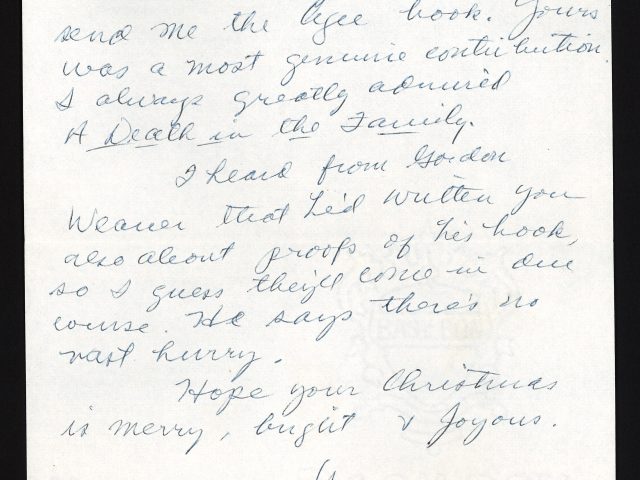 send me the Agee book. Yours
was a most genuine contribution.
I always greatly admired
A Death in the Family.
I heard from Gordon
Weaver that he'd written you
also about proofs of his book,
so I guess they'll come in due
course. He says there's no
vast hurry.
Hope your Christmas
is merry, bright & joyous.